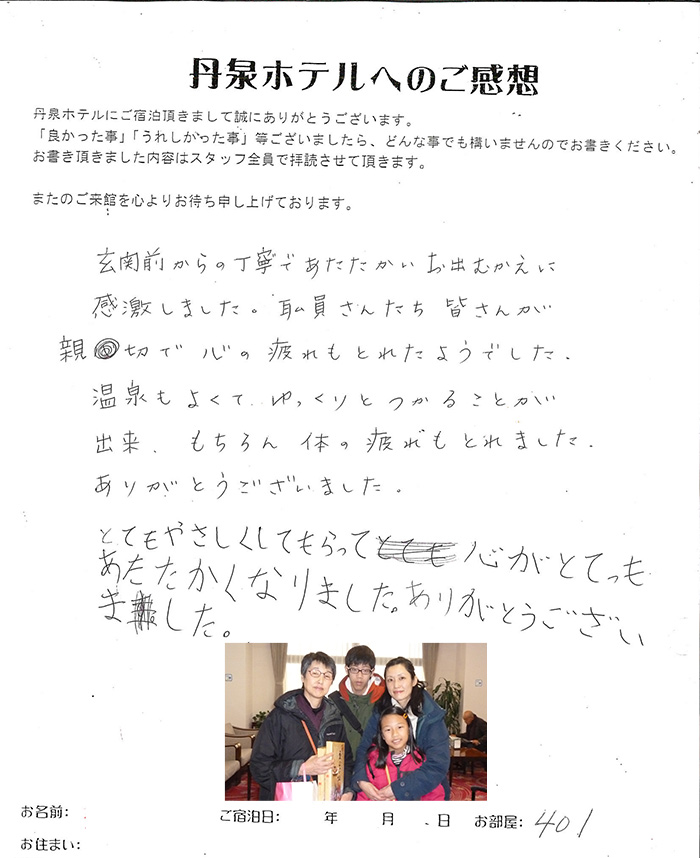 丹泉ホテルへのご感想
丹泉ホテルにご宿泊頂きまして誠にありがとうございます。
「良かった事」「うれしかった事」等ございましたら、どんな事でも構いませんのでお書きください。
お書き頂きました内容はスタッフ全員で拝読させて頂きます。
またのご来館を心よりお待ち申し上げております。
玄関前からの丁寧であたたかいお出むかえに
感激しました。職員さんたち 皆さんが
親切で 心の疲れもとれたようでした.
温泉もよくて ゆっくりとつかることが
出来、もちろん 体の疲れもとれました.
ありがとうございました。
とてもやさしくしてもらって 心がとてっも
あたたかくなりました。ありがとうござい
ました。
お名前:
ご宿泊日: 年 月 日 お部屋: 401
お住まい: